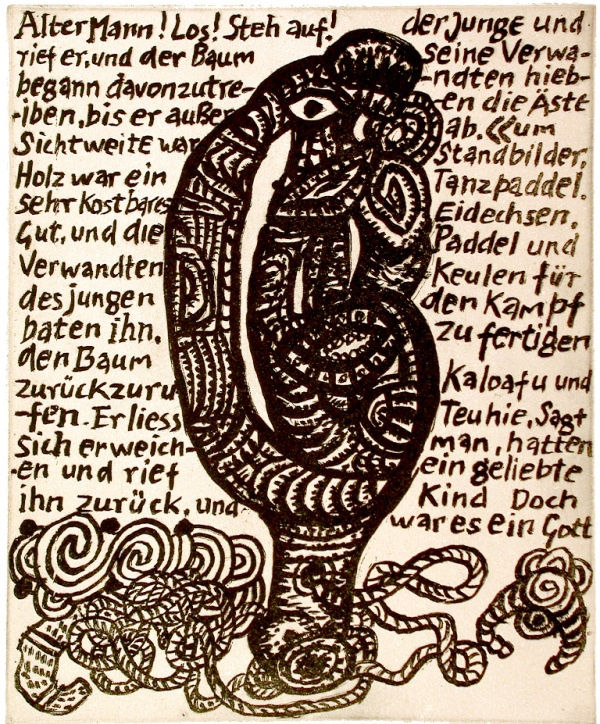 Alter Mann! Los! Steh auf!
rief er, und der Baum
begann davonzutre-
-iben, bis er außer
Sichtweite war
Holz war ein
sehr Kostbares
Gut, und die
Verwandten
des jungen
baten ihn,
den Baum
zurückzuru
-fen. Er liess
sich erweich-
-en und rief
ihn zurück, und
der Junge und
seine Verwa-
-ndten hieb-
-en die Äste
ab. «um
Standbilder,
Tanzpaddel.
Eidechsen,
Paddel und
Keulen für
den Kampf
zu fertigen
Kaloafu und
Teuhie, Sagt
man, hatten
ein geliebte
Kind Doch
war es ein Gott